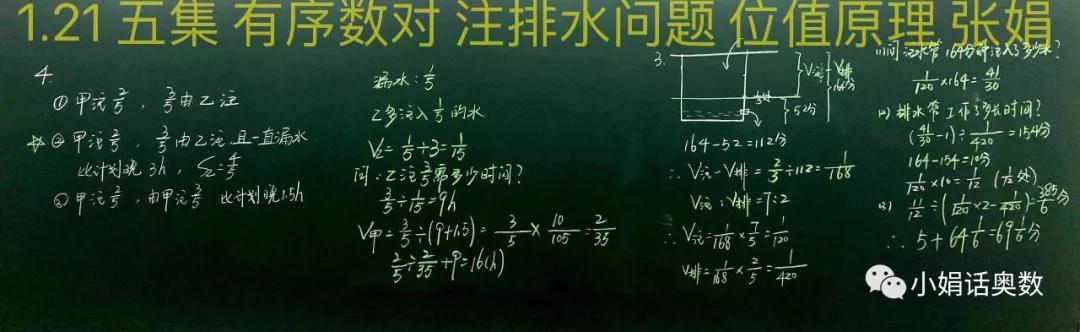 1.21 五集 有序数对 注排水问题 位值原理 张娟
4.
① 甲注2/5，3/5由乙注
☆② 甲注2/5，3/5由乙注,且一直漏水
比计划晚 3h，
③ 甲注2/5，由甲注3/5 比计划晚1.5h
漏水:1/5
乙多注入1/5的水
V乙=1/5÷3=1/15
问:乙注3/5需多少时间?
3/5÷1/15=9h
V甲=3/5÷(9+1.5)=3/5×10/105=2/35
2/5÷2/35+9=16(h)
3.
V注-V排
164分
52分
164-52=112分
∴V注-V排=2/3÷112=1/168
V注:V排=7:2
∴V注=1/168×7/5=1/120
V排=1/168×2/5=1/420
(1)问注水管164分钟注入了多少水?
1/120×164=41/30
(2)排水管工作了多长时间?
(41/30-1)÷1/420=154分
164-154=10分
1/120×10=1/12 (1/12处)
(3) 11/12÷(1/120×2-1/420)=385/6分
∴5+64 1/6=69 1/6分
小娟话奥数